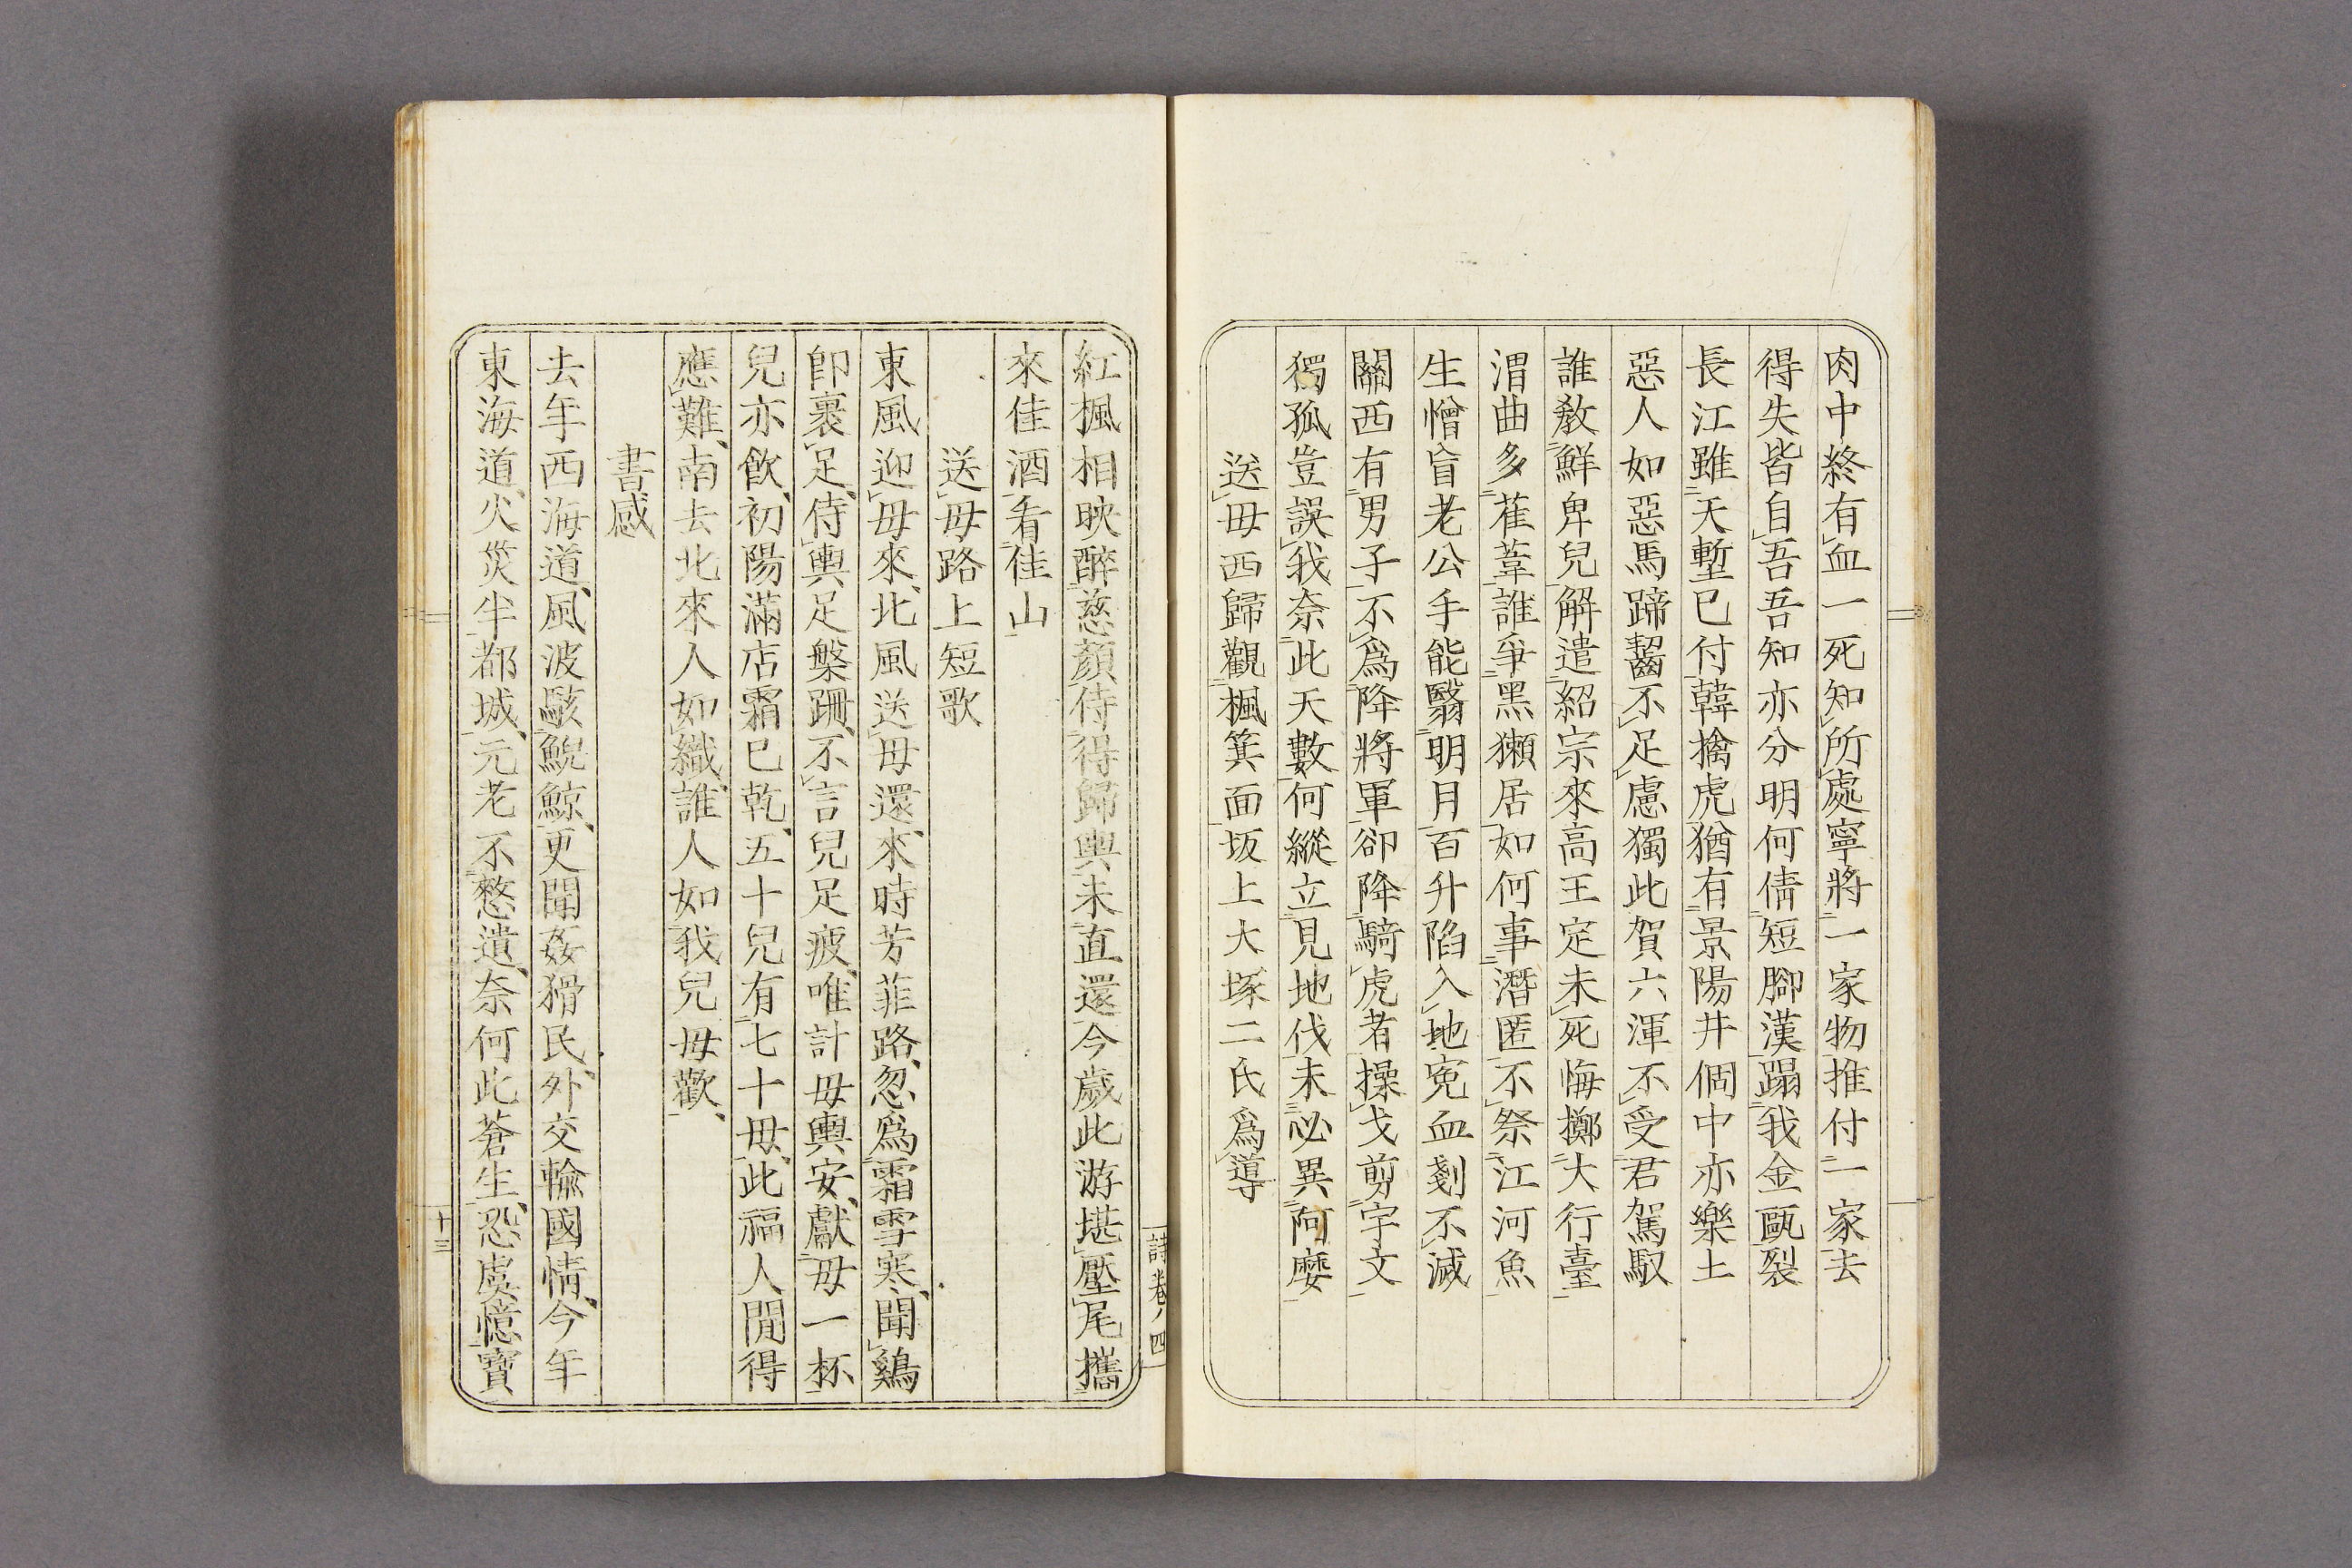 肉中終有血一死知所處寧將一家物推付一家去
得失皆自吾吾知亦分明何倩短腳漢蹋我金甌裂
長江雖天塹已付韓擒虎猶有景陽井個中亦樂土
惡人如惡馬蹄齧不足慮獨此賀六渾不受君駕馭
誰教鮮卑兒解遣紹宗來高王定未死悔擲大行臺
渭曲多萑葦誰爭黑獺居如何事潛匿不祭江河魚
生憎盲老公手能翳明月百升陷入地寃血剗不滅
關西有男子不爲降將軍卻降騎虎者操戈剪宇文
獨孤豈誤我奈此天數何縱立見地伐未必異阿䯢
送母西歸觀楓箕面坂上大塚二氏爲導
紅楓相映醉慈顏侍得歸輿未直還今歲此游堪壓尾攜
來佳酒看佳山
送母路上短歌
東風迎母來北風送母還來時芳菲路忽爲霜雪寒聞鷄
卽裹足侍輿足槃跚不言兒足疲唯計母輿安獻母一杯
兒亦飮初陽滿店霜已乾五十兒有七十母此福人閒得
應難南去北來人如織誰人如我兒母歡
書感
去年西海道風波駭鯢鯨更聞姦猾民外交輸國情今年
東海道火災半都城元老不憖遺奈何此蒼生恐虞億寶
詩卷ノ四
十三